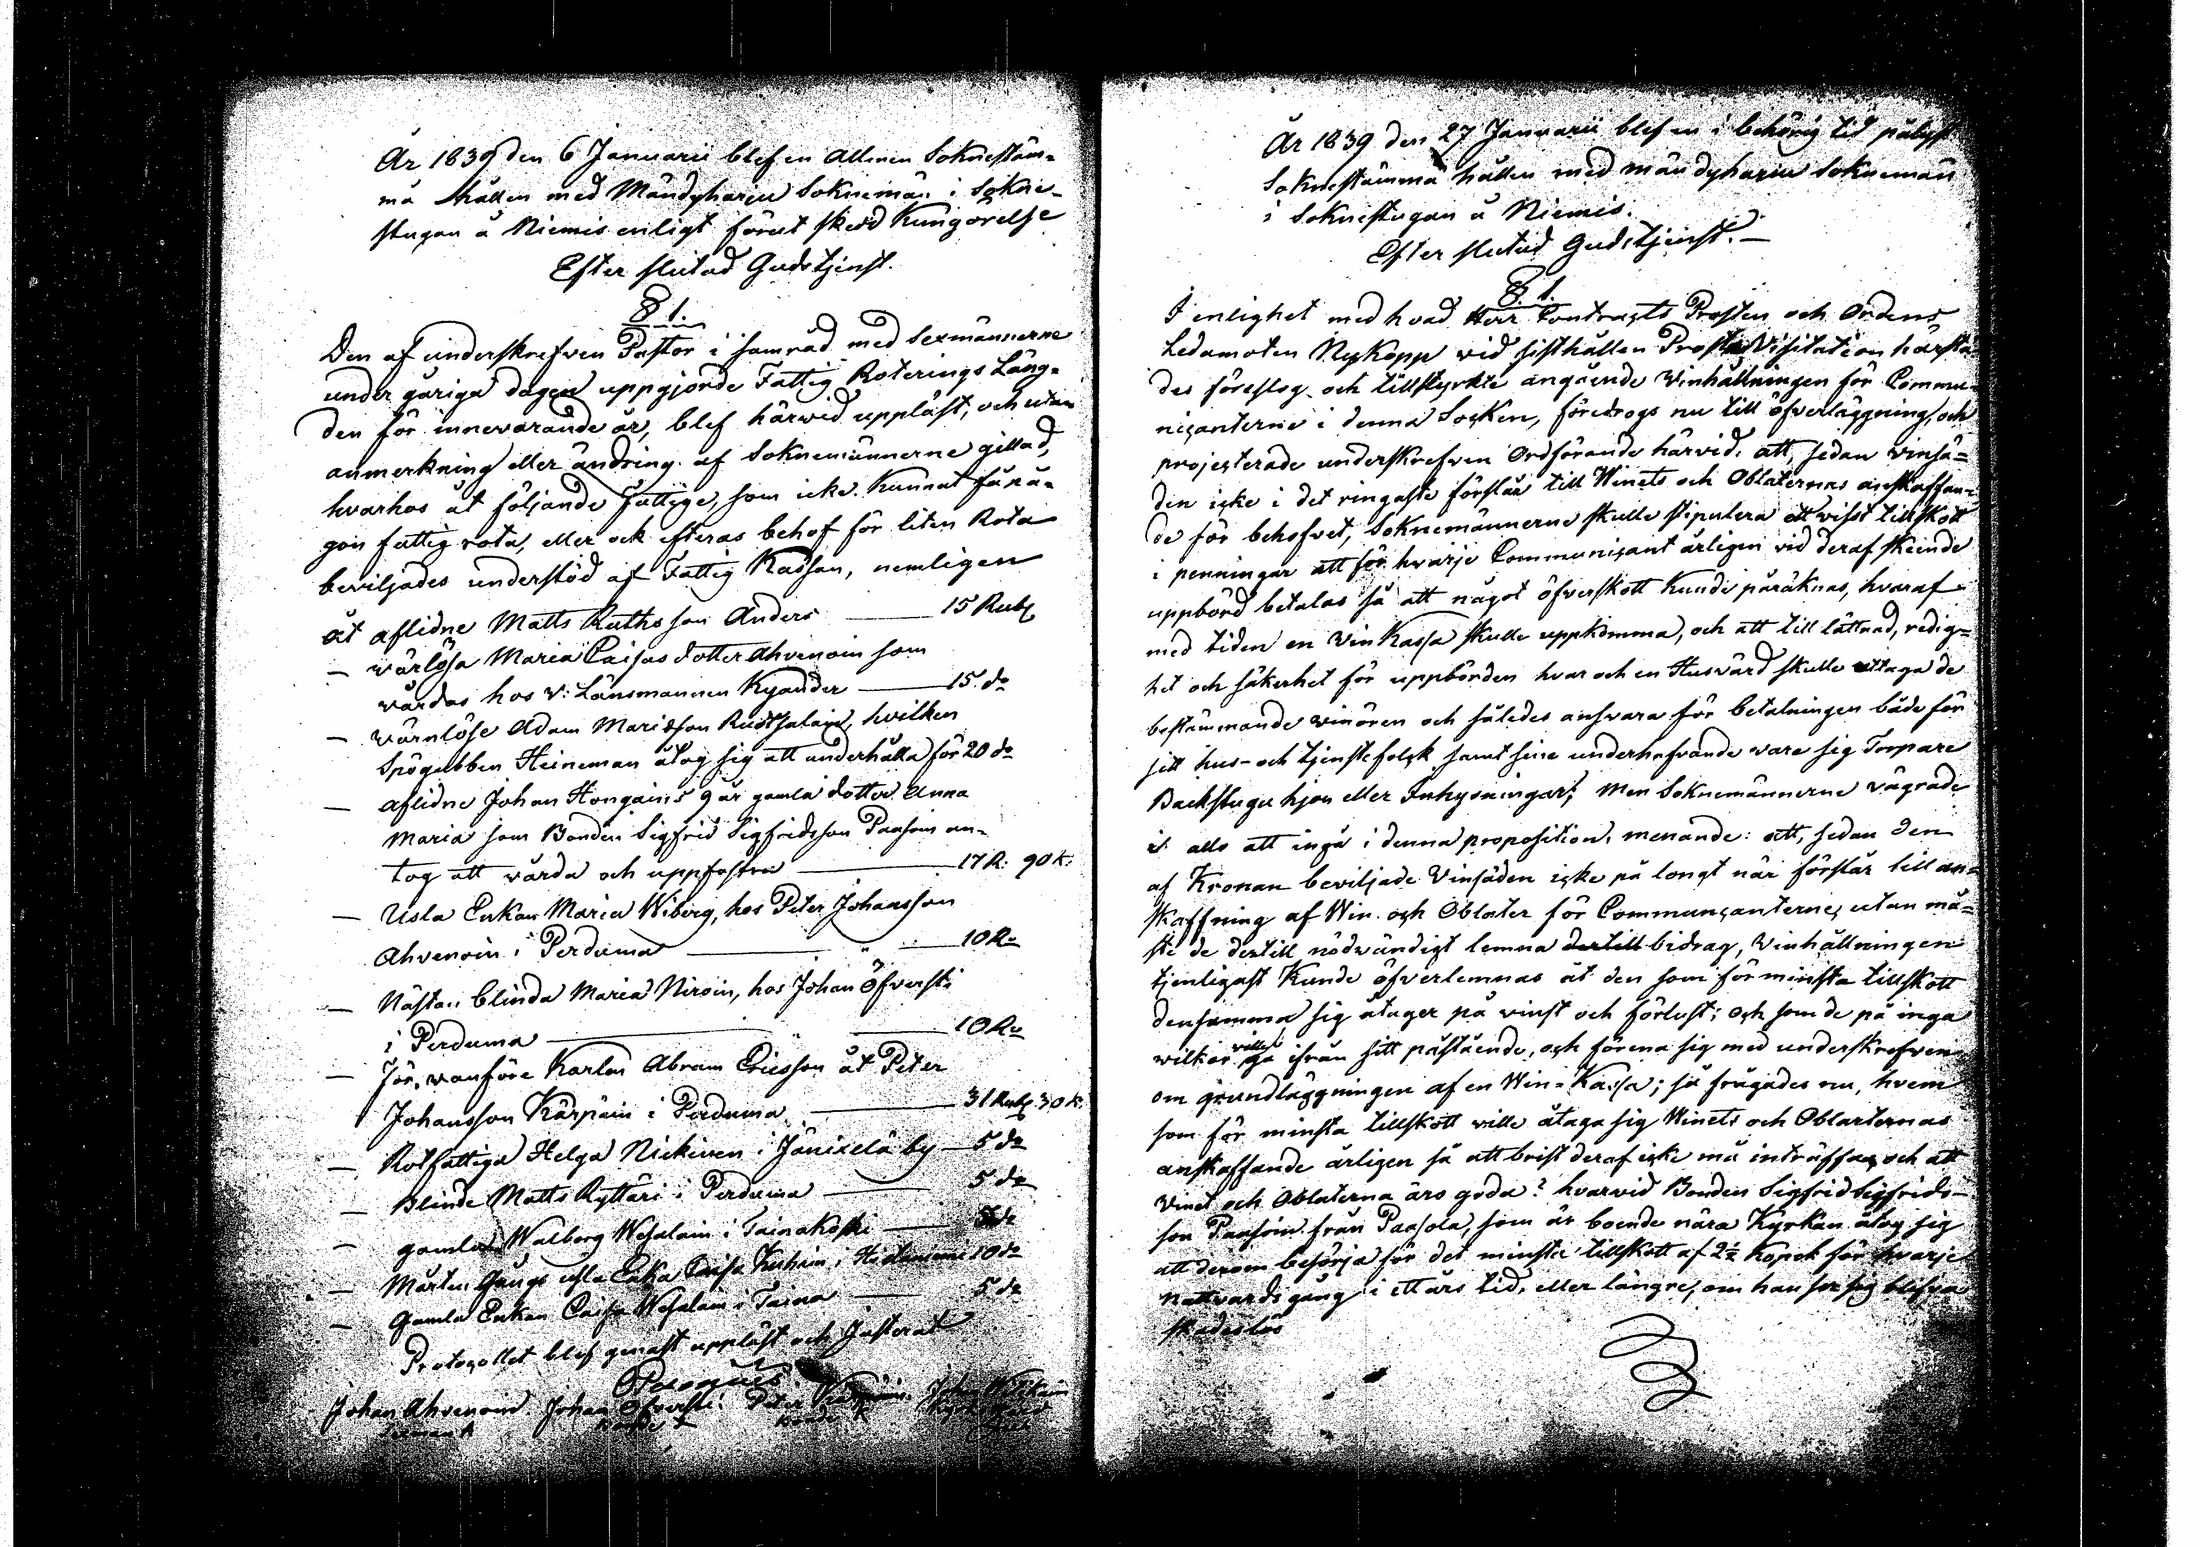 År 1839 den 6 Januarii blef en Allmän Soknestäm-
ma hållen med Mandtyharje Soknemän i Sokne-
stugan å Niemis enligt förut skedd Kungörelse
Efter slutad Gudstjenst.
§ 1.
Den af underskrefven Pastor i samråd med Sexmännerne
under gåriga dagen uppgjorde Fattig Roterings Läng-
den för innevarande år, blef härwid uppläst, och utan
anmerkning eller ändring af Soknemännerne gillad,
hvarhos åt följande fattige, som icke kunnat få nå-
gon fattig rota, eller ock efteras behof för liten Rota
beviljades understöd af Fattig Kassan, nemligen
åt aflidne Matts Ruths son Anders — 15 Rub.
— wärlösa Maria Caisas dotter Ahvenain som
vårdas hos v: Länsmannen Kyander — 15 do
— wärnlöse Adam Mariæson Ruotsalain, hvilken
Spögubben Heineman åtog sig att underhålla för 20 do
— aflidne Johan Hongains 9 år gamla dotter Anna
Maria som Bonden Sigfrid Sigfridsson Paasoin an-
tog att vårda och uppfostra — 17 R. 90 k.
— Usla Enkan Maria Wiberg, hos Peter Johansson
Ahvenoin i Perduma — 10 Ru
— Nästan blinda Maria Niroin, hos Johan Öfversti
i Perduma — 10 Ru
— För vanföre Karlen Abram Ericsson åt Peter
Johansson Kärpäin i Perduma — 31 Rub. 30 k.
— Rotfattiga Helga Nickinen i Jänixelä by — 5 do
— Blinde Matts Ryttäri i Perduma — 5 do
— gamla Walborg Wesalain i Tainakoski — 5 do
— Mårten Gängs usla Enka Caisa i 10 do
— Gamla Enkan Caisa Wesalain i Taina — 5 do
Protocollet blef genast uppläst och Justerat
Johan Ahvenoin Johan Öfversti Peter Kärpäin
Sexman
År 1839 den 27 Januarii blef en i behörig tid pålyst
Soknestämma hållen med mandtyharje Soknemän
i Soknestugan å Niemis.
Efter slutad Gudstjenst. —
§. 1.
I enlighet med hvad Herr Contracts Prosten och Ordens
Ledamoten Nykopp vid sisthållen Prosts Visitation härstä-
des föreslog och tillstyrkte angående Vinhållningen för Commu-
nicanterne i denna Socken, föredrogs nu till öfverläggning, och
projecterade underskrefven Ordförande härvid, att, sedan vinsä-
den icke i det ringaste förslår till Winets och Oblaternas anskaffan-
de för behofvet, Soknemännerne skulle stipulera ett visst tillskott
i penningar att för hvarje Communicant årligen vid deraf skeende
uppbörd betalas så att något öfverskott kunde påräknas, hvaraf
med tiden en Vin Kassa skulle uppkomma, och att till lättnad, redig-
het och säkerhet för uppbörden hvar och en Husvärd skulle uttaga de
bestämmande vinören och således ansvara för betalningen både för
sitt hus- och tjenstefolck samt sine underhafvande vare sig Torpare
Backstugu hjon eller Inhysningar; Men Soknemännerne vägrade
alls att ingå i denna proposition, menande: att, sedan den
af Kronan beviljade Vinsäden icke på longt när förslår till an-
skaffning af Win och Oblater för Communicanterne, utan må-
ste de dertill nödwändigt lemna dertill bidrag, Vinhållningen
tjenligast kunde öfverlemnas åt den som för minsta tillskott
densamma sig åtager på vinst och förlust; och som de på inga
wilkor ville gå ifrån sitt påstående, och förena sig med underskrefven
om grundläggningen af en Win-Kassa; så frågades nu, hvem
som för minsta tillskott wille åtaga sig Winets och Oblaternas
anskaffande årligen så att brist deraf icke må inträffa, och att
Vinet och Oblaterna äro goda? hvarvid Bonden Sigfrid Sigfrids-
son Paasoin från Paasola, som är boende nära Kyrkan åtog sig
att derom besörja för det minsta tillskott af 2½ Kopek för hvarje
Nattvards gång i ett års tid, eller längre, om han ser sig blifva
skadeslös